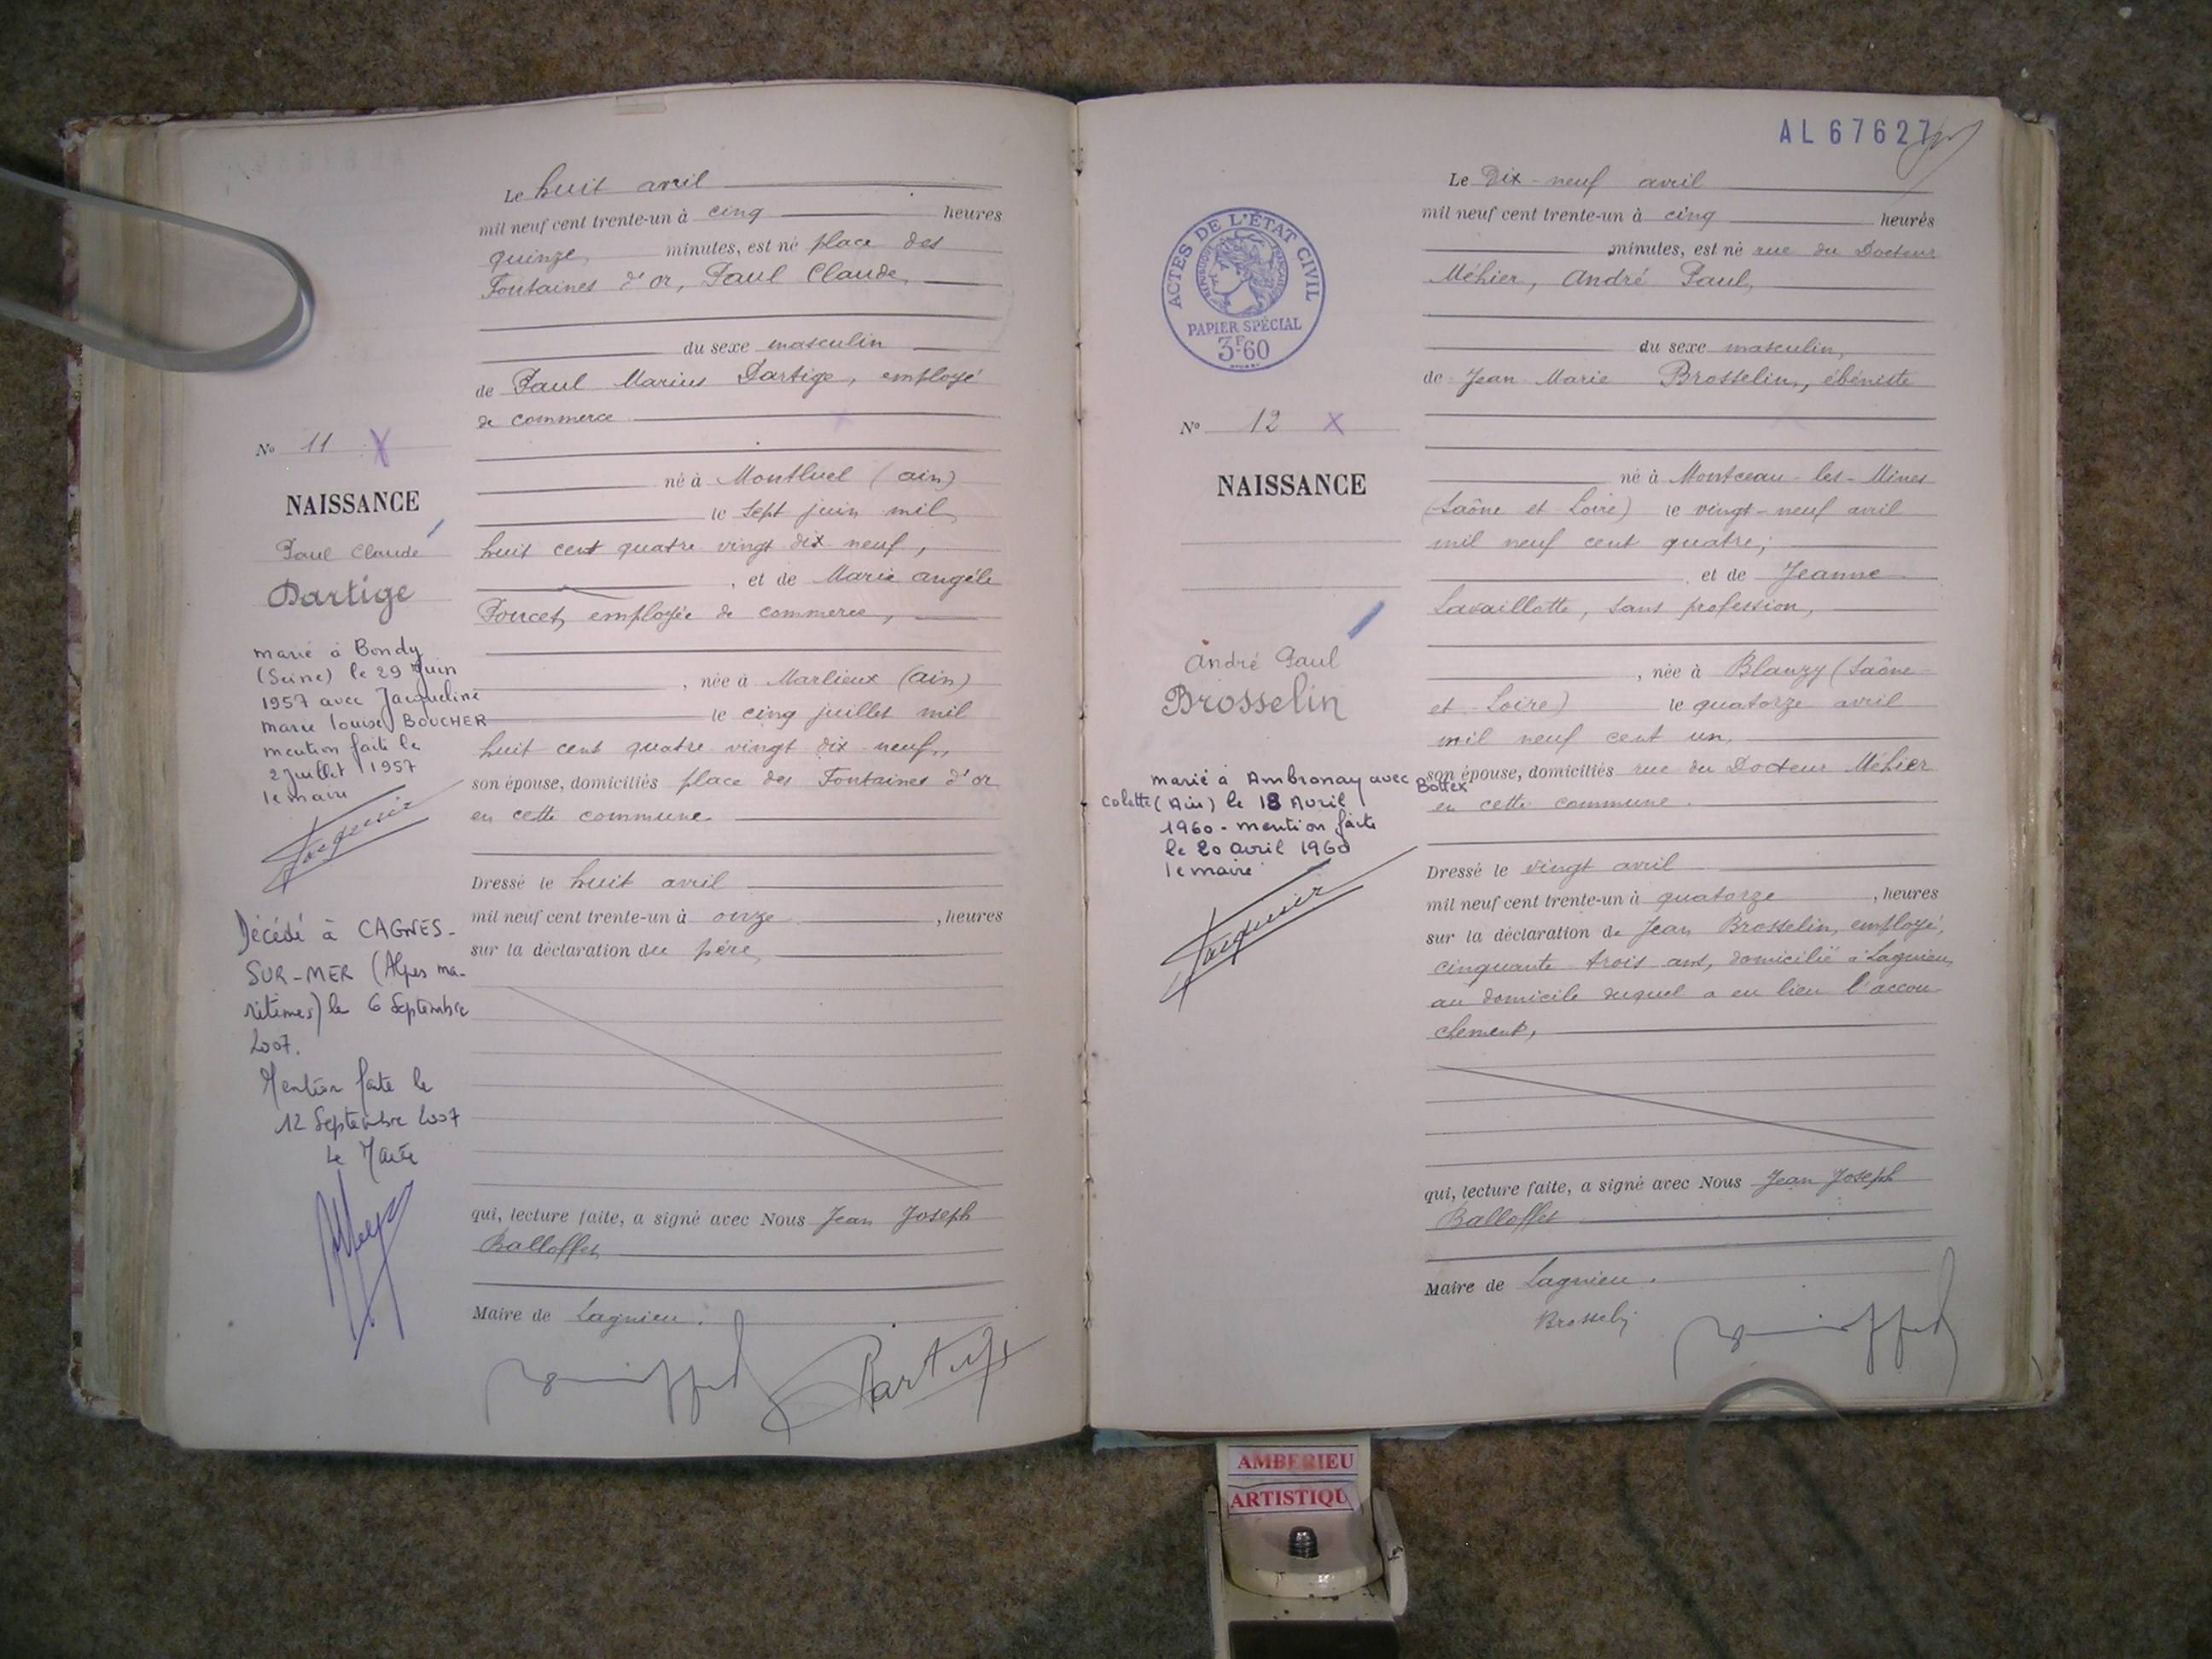 Le huit avril
mil neuf cent trente-un à cinq heures
quinze minutes, est né place des
Fontaines d'or, Paul Claude,
du sexe masculin
de Paul Marius Dartige, employé
de commerce
né à Montluel (ain)
le sept juin mil
huit cent quatre vingt dix neuf,
, et de Marie angèle
Poncet, employée de commerce,
, née à Marlieux (ain)
le cinq juillet mil
huit cent quatre vingt dix-neuf,
son épouse, domiciliés place des Fontaines d'or
en cette commune.
Dressé le huit avril
mil neuf cent trente-un à onze, heures
sur la déclaration du père,
qui, lecture faite, a signé avec Nous Jean Joseph
Balloffet
Maire de Lagnieu.
Nº 11 X
NAISSANCE
Paul Claude
Dartige
marié à Bondy
(Seine) le 29 Juin
1957 avec Jacqueline
marie louise BOUCHER
mention faite le
2 Juillet 1957
le maire
Décédé à CAGNES-
SUR-MER (Alpes ma-
ritimes) le 6 Septembre
2007.
Mention faite le
12 Septembre 2007
Le Maire
AL 67627
Le Dix-neuf avril
mil neuf cent trente-un à cinq heures
minutes, est né rue du Docteur
Méhier, André Paul,
du sexe masculin,
de Jean Marie Brosselin, ébéniste
né à Montceau-les-Mines
(Saône et Loire) le vingt-neuf avril
mil neuf cent quatre;
et de Jeanne
Lavaillotte, sans profession,
, née à Blanzy (Saône
et Loire) le quatorze avril
mil neuf cent un,
son épouse, domiciliés rue du Docteur Méhier
en cette commune.
Dressé le vingt avril
mil neuf cent trente-un à quatorze, heures
sur la déclaration de Jean Brosselin, employé,
cinquante trois ans, domicilié à Lagnieu,
au domicile duquel a eu lieu l'accou
chement,
qui, lecture faite, a signé avec Nous Jean Joseph
Balloffet
Maire de Lagnieu.
Brosselin
ACTES DE L'ÉTAT CIVIL
RÉPUBLIQUE FRANÇAISE
PAPIER SPÉCIAL
3F60
Nº 12 X
NAISSANCE
André Paul
Brosselin
marié à Ambronay avec Bottex
Colette (Ain) le 18 Avril
1960 - mention faite
le 20 avril 1960
le maire
AMBERIEU
ARTISTIQU